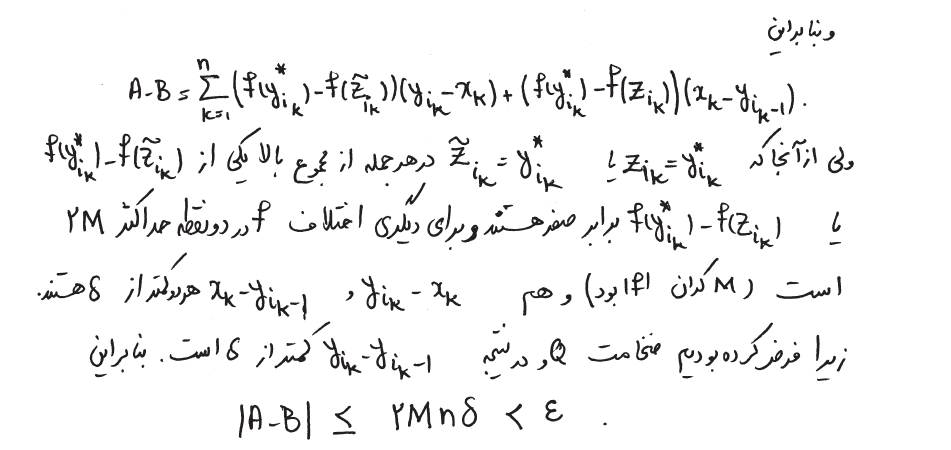 و بنابراین
A-B = \sum_{k=1}^{n} (f(y^*_{i_k}) - f(\tilde{z}_{i_k}))(y_{i_k} - x_k) + (f(y^*_{i_k}) - f(z_{i_k}))(x_k - y_{i_k-1}).
ولی از آنجا که z_{i_k} = y^*_{i_k} یا \tilde{z}_{i_k} = y^*_{i_k} در هر جمله از مجموع بالا یکی از f(y^*_{i_k}) - f(\tilde{z}_{i_k})
یا f(y^*_{i_k}) - f(z_{i_k}) برابر صفر هستند و برای دیگری اختلاف f در دو نقطه حداکثر ۲M
است (M کران |f| بود) و هم y_{i_k} - x_k و x_k - y_{i_k-1} هر دو کمتر از δ هستند.
زیرا فرض کرده بودیم ضخامت Q و در نتیجه y_{i_k} - y_{i_k-1} کمتر از δ است. بنابراین
|A-B| ≤ ۲Mnδ < ε .